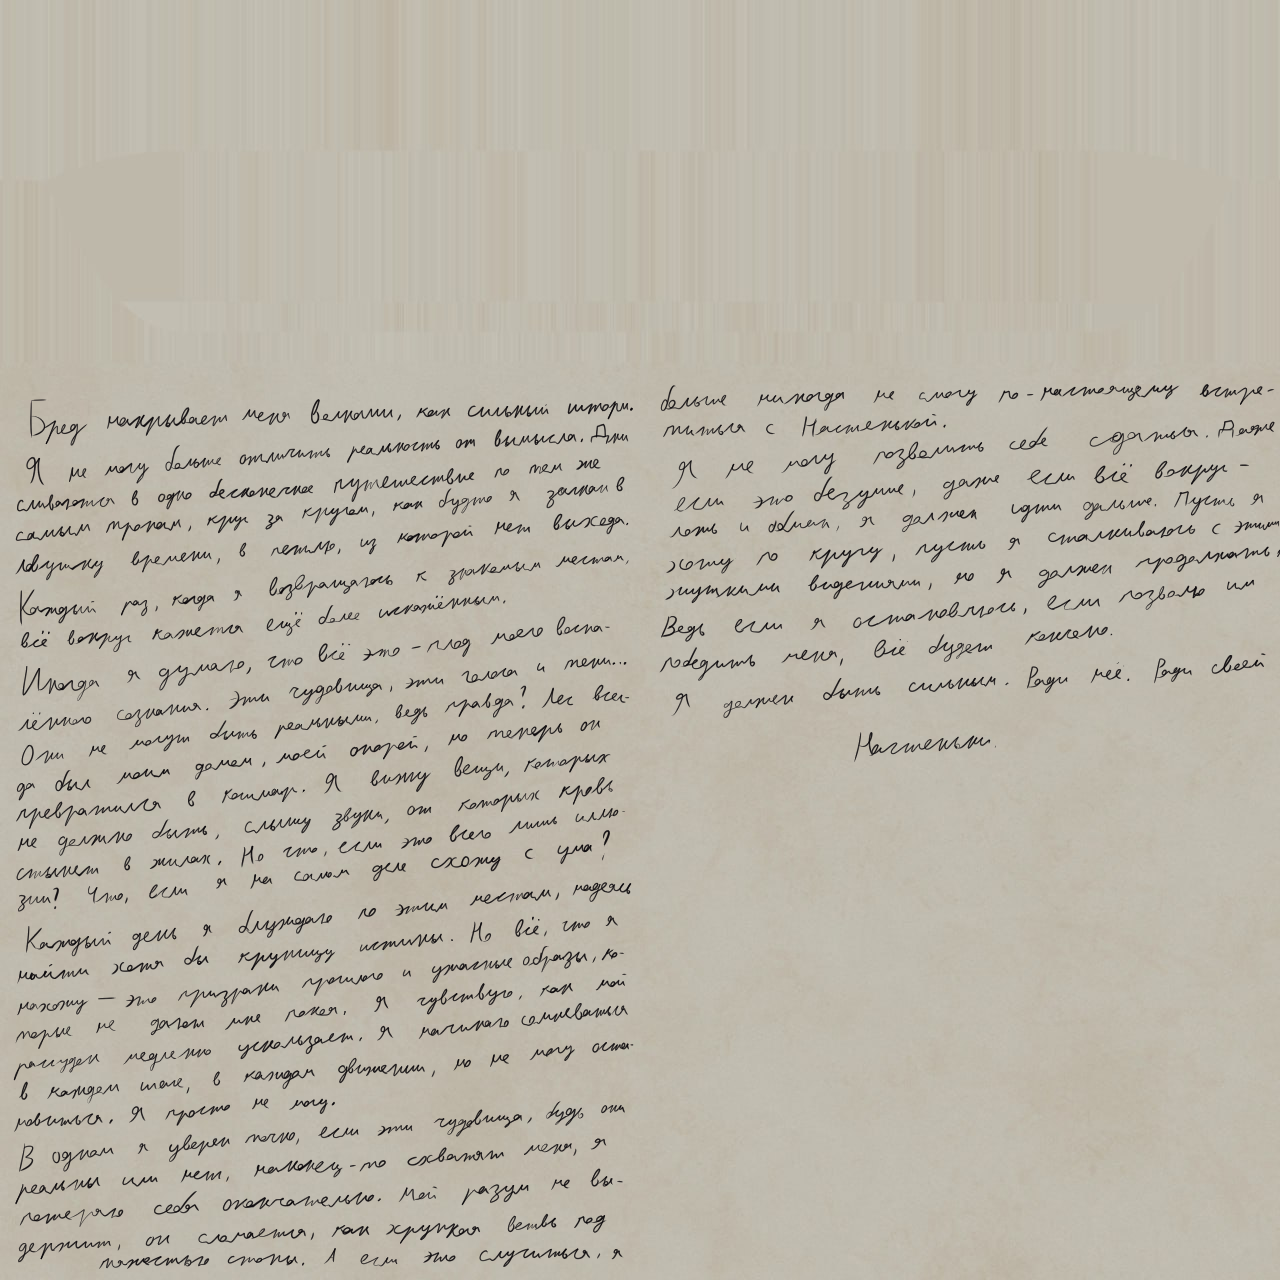 Бред накрывает меня волнами, как сильный шторм.
Я не могу больше отличить реальность от вымысла. Дни
сливаются в одно бесконечное путешествие по тем же
самым тропам, круг за кругом, как будто я загнан в
ловушку времени, в петлю, из которой нет выхода.
Каждый раз, когда я возвращаюсь к знакомым местам,
всё вокруг кажется ещё более искажённым.
Иногда я думаю, что всё это - плод моего воспа-
лённого сознания. Эти чудовища, эти голоса и тени...
Они не могут быть реальными, ведь правда? Лес всег-
да был моим домом, моей опорой, но теперь он
превратился в кошмар. Я вижу вещи, которых
не должно быть, слышу звуки, от которых кровь
стынет в жилах. Но что, если это всего лишь иллю-
зии? Что, если я на самом деле схожу с ума?
Каждый день я блуждаю по этим местам, надеясь
найти хотя бы крупицу истины. Но всё, что я
нахожу — это призраки прошлого и ужасные образы, ко-
торые не дают мне покоя. Я чувствую, как мой
рассудок медленно ускользает. Я начинаю сомневаться
в каждом шаге, в каждом движении, но не могу оста-
новиться. Я просто не могу.
В одном я уверен точно, если эти чудовища, будь они
реальны или нет, наконец-то схватят меня, я
потеряю себя окончательно. Мой разум не вы-
держит, он сломается, как хрупкая ветвь под
тяжестью стопы. А если это случиться, я
больше никогда не смогу по-настоящему встре-
титься с Настенькой.
Я не могу позволить себе сдаться. Даже
если это безумие, даже если всё вокруг -
ложь и обман, я должен идти дальше. Пусть я
хожу по кругу, пусть я сталкиваюсь с этими
жуткими видениями, но я должен продолжать.
Ведь если я остановлюсь, если позволю им
победить меня, всё будет кончено.
Я должен быть сильным. Ради неё. Ради своей
Настеньки.